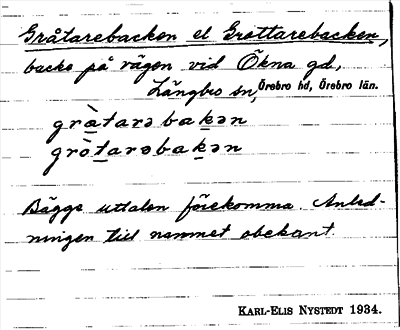 Gråtarebacken el Grottarebacken,
backe på vägen vid Ökna gd,
Längbro sn, Örebro hd, Örebro län.
gràtarə bakən
gròtarəbakən
Bägge uttalen förekomma. Anled-
ningen till namnet obekant.
KARL-ELIS NYSTEDT 1934.